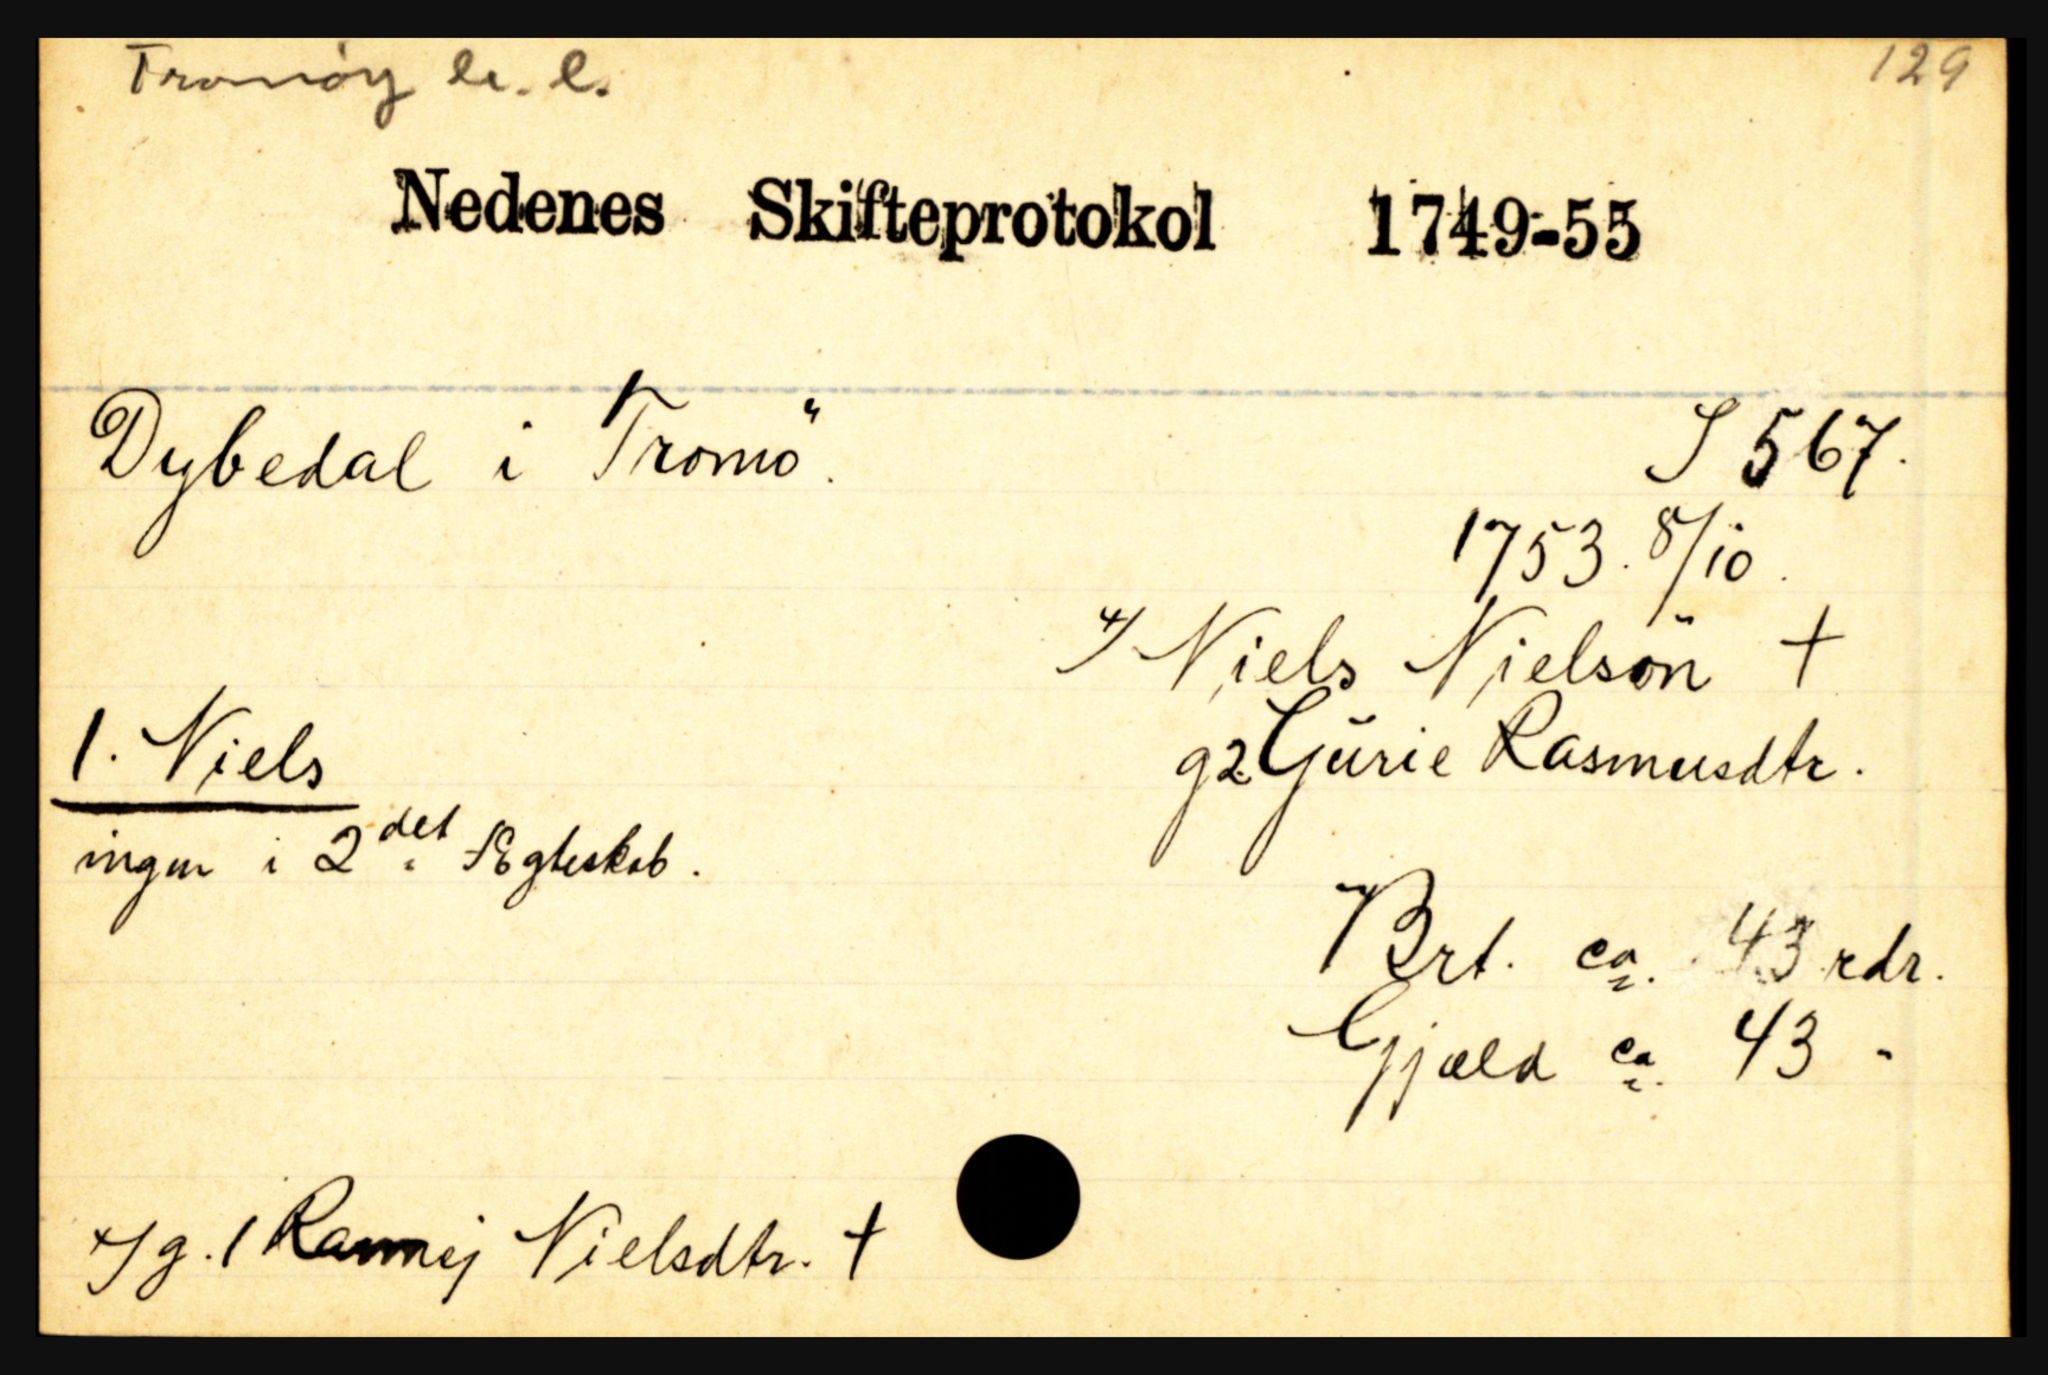 Tromöy l. l. 129
Nedenes Skifteprotokol 1749-55
Dybedal i Tromö. S 567.
1753. 8/10.
+/ Niels Nielsön †
1. Niels g2. Gurie Rasmusdtr.
ingen i 2det Ægteskab.
Brt. ca. 43 rdr.
Gjæld ca. 43 "
+/ g. 1 Nielsdtr. †